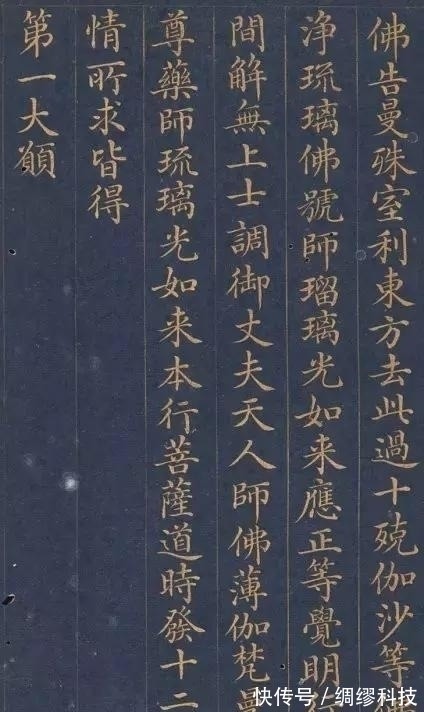 佛告曼殊室利東方去此過十殑伽沙等
淨琉璃佛號師瑠璃光如来應正等覺明
間解無上士調御丈夫天人師佛薄伽梵曼
尊藥師琉璃光如来本行菩薩道時發十二
情所求皆得
第一大願
快传号/绸缪科技